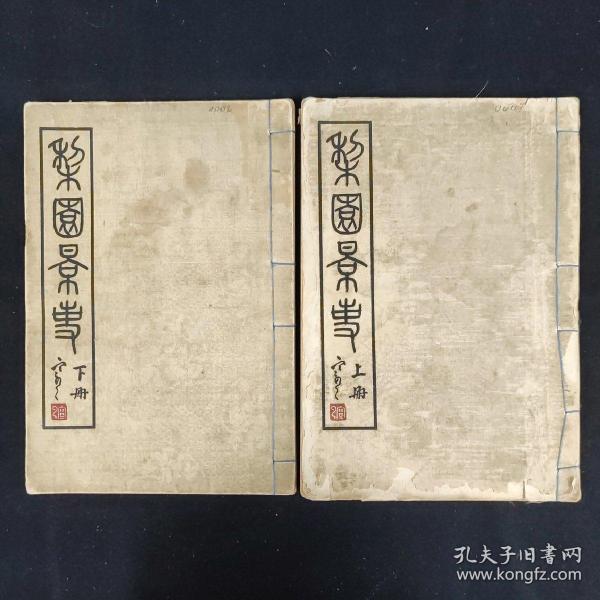 梨園景事
下册
梨園景事
上册
孔夫子旧书网
www.kongfz.com